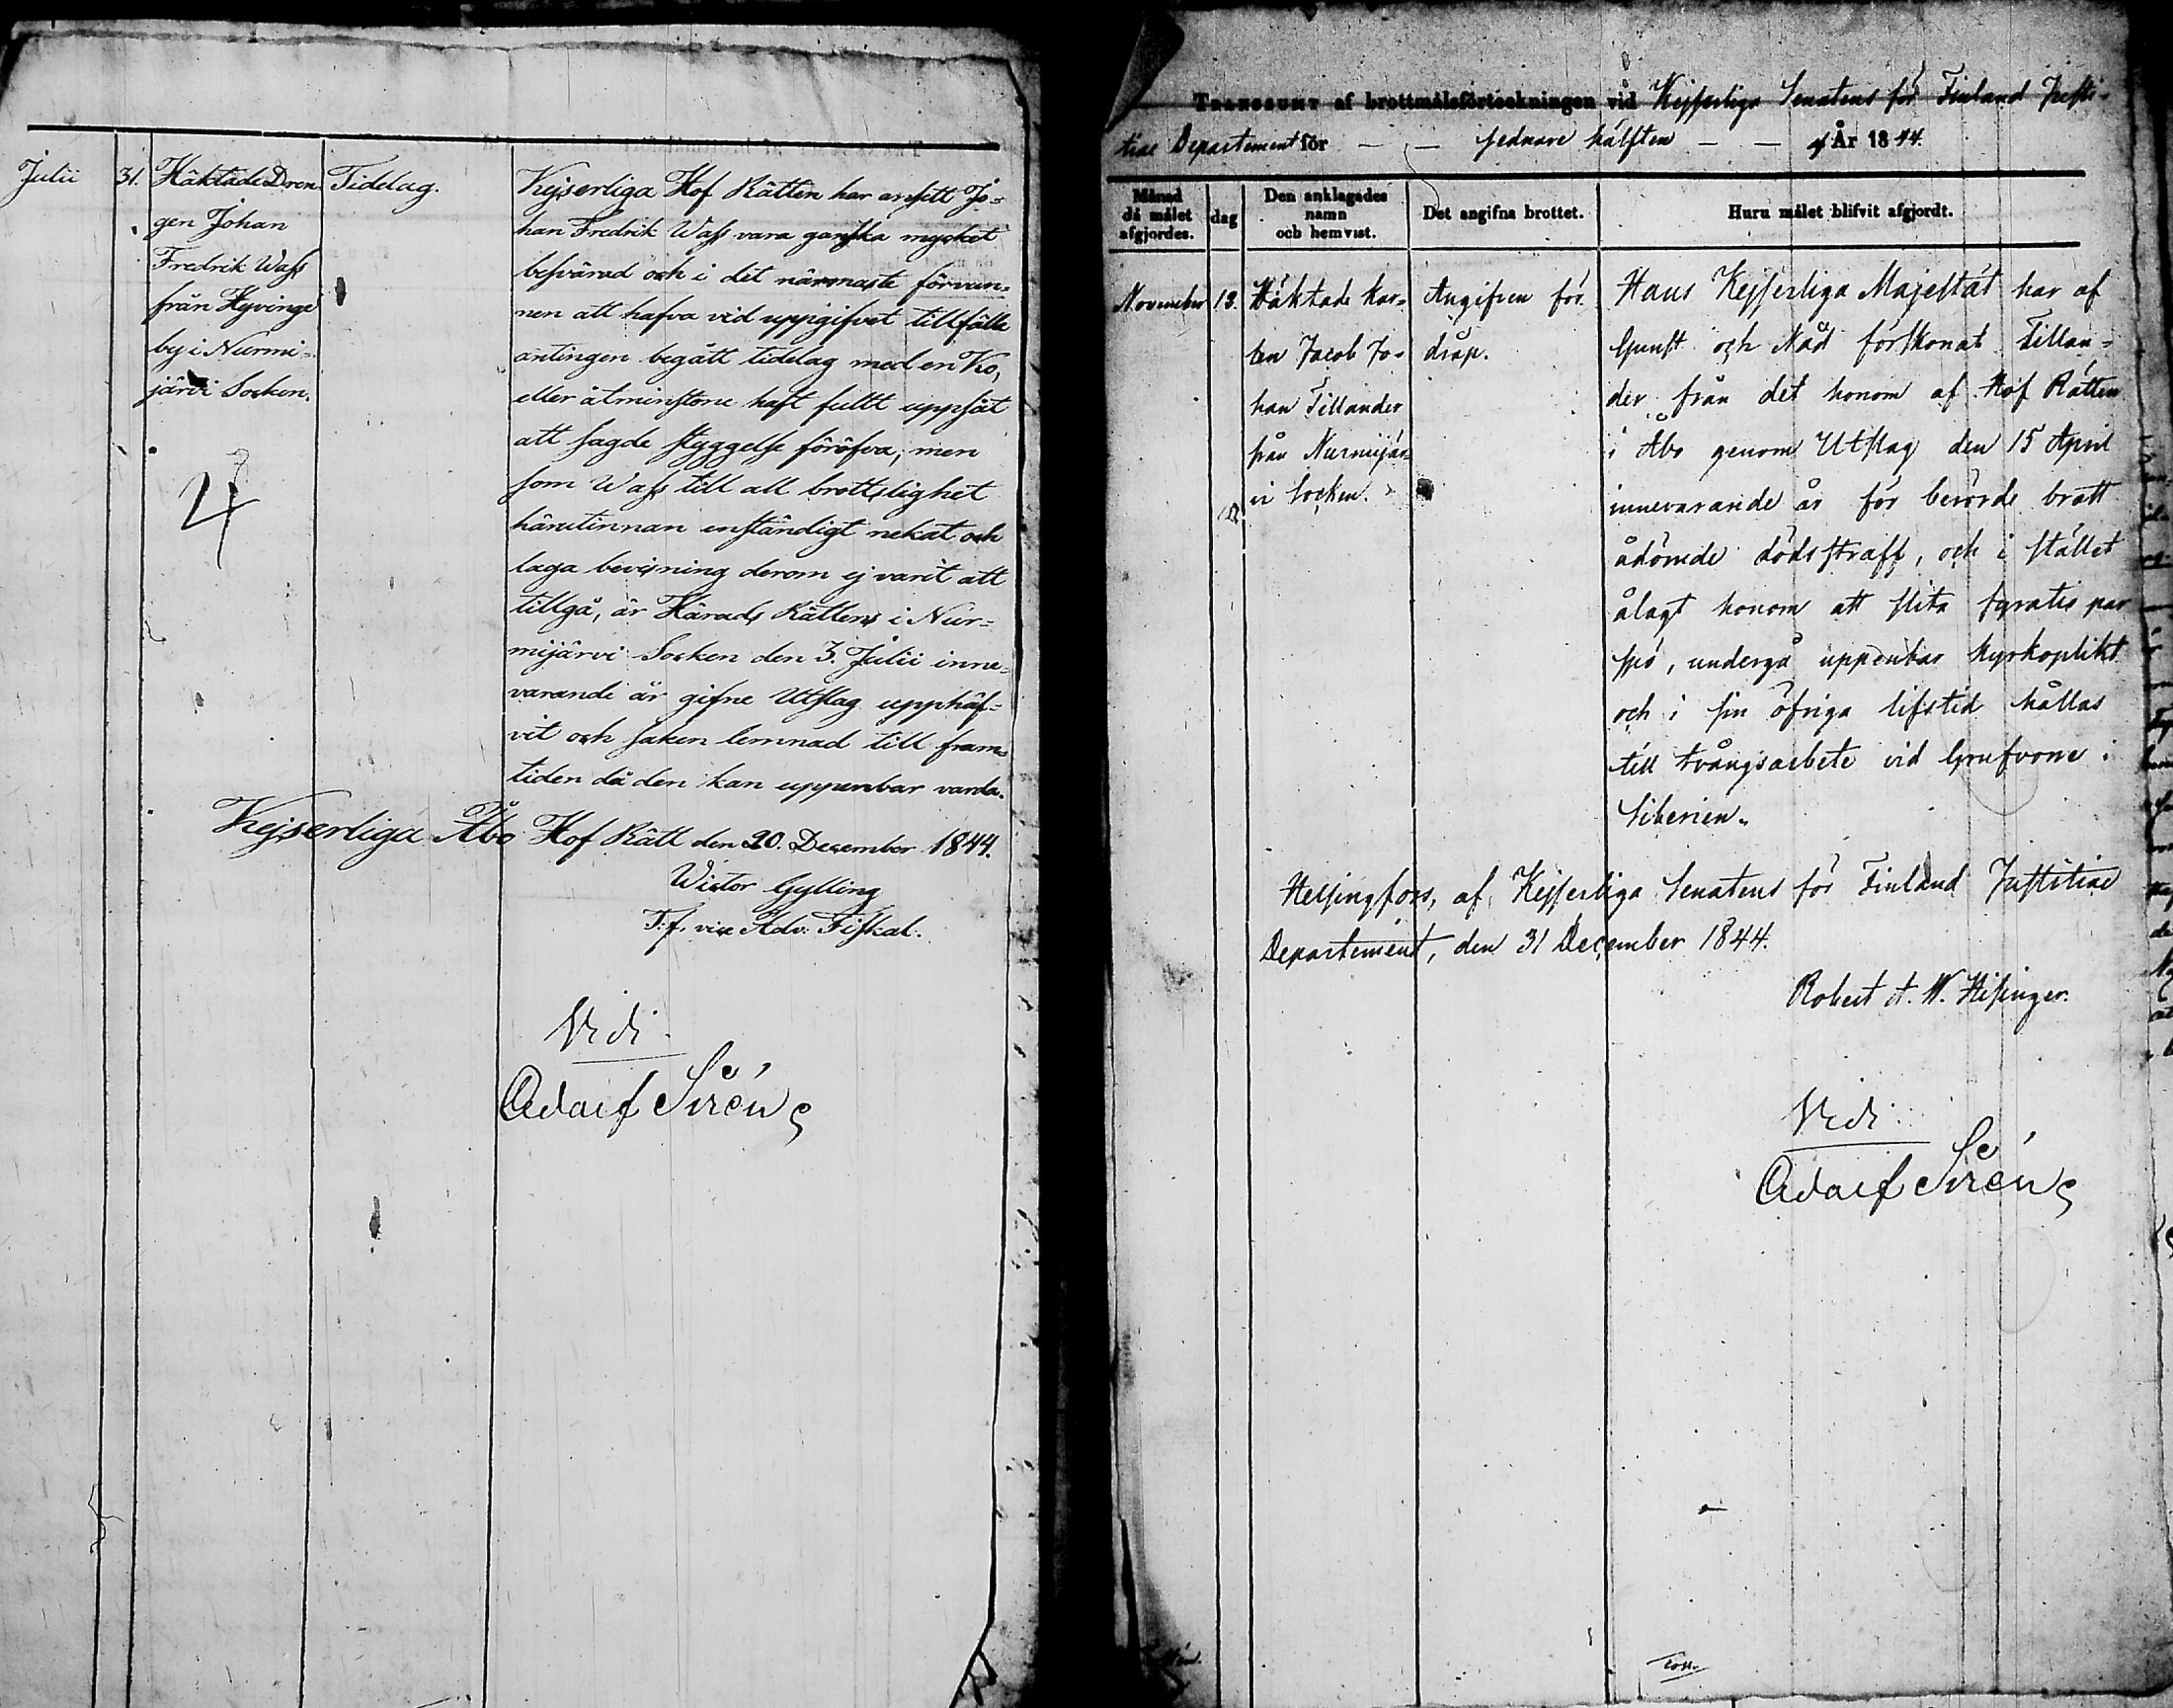 Julii 31. Häktade Dren-
gen Johan
Fredrik Wass
från Hyvinge
by i Nurmi-
järvi Socken.
4
Tidelag.
Kejserliga Hof Rätten har ansett Jo-
han Fredrik Wass vara ganska mycket
besvärad och i det närmaste förvun-
nen att hafva vid uppgifvet tillfälle
antingen begått tidelag med en Ko,
eller åtminstone haft fullt uppsåt
att sagde styggelse föröfva; men
som Wass till all brottslighet
härutinnan enständigt nekat och
laga bevisning derom ej varit att
tillgå, är Härads Rättens i Nur-
mijärvi Socken den 3. Julii inne-
varande år gifne Utslag upphäf-
vit och saken lemnad till fram-
tiden då den kan uppenbar varda.
Kejserliga Åbo Hof Rätt den 20. December 1844.
Wictor Gylling
T.f. vice Adv: Fiskal.
Vidi
Adolf Sirén
Transsumt af brottmålsförteckningen vid Kejserliga Senatens för Finland Justi-
tiae Departement för — — sednare hälften — — af År 1844.
Månad
då målet
afgjordes.
dag
Den anklagades
namn
och hemvist.
Det angifna brottet.
Huru målet blifvit afgjordt.
November 13. Häktade Kar-
len Jacob Jo-
han Tillander
från Nurmijär-
vi Socken.
Angifven för
dråp.
Hans Kejserliga Majestät har af
Gunst och Nåd förskonat Tillan-
der från det honom af Hof Rätten
i Åbo genom Utslag den 15 April
innevarande år för berörde brott
ådömde dödsstraff, och i stället
ålagt honom att slita fyratio par
spö, undergå uppenbar kyrkoplikt
och i sin öfriga lifstid hållas
till tvångsarbete vid Grufvorne i
Siberien.
Helsingfors, af Kejserliga Senatens för Finland Justitiae
Departement, den 31 December 1844.
Robert A. W. Hisinger.
Vidi
Adolf Sirén